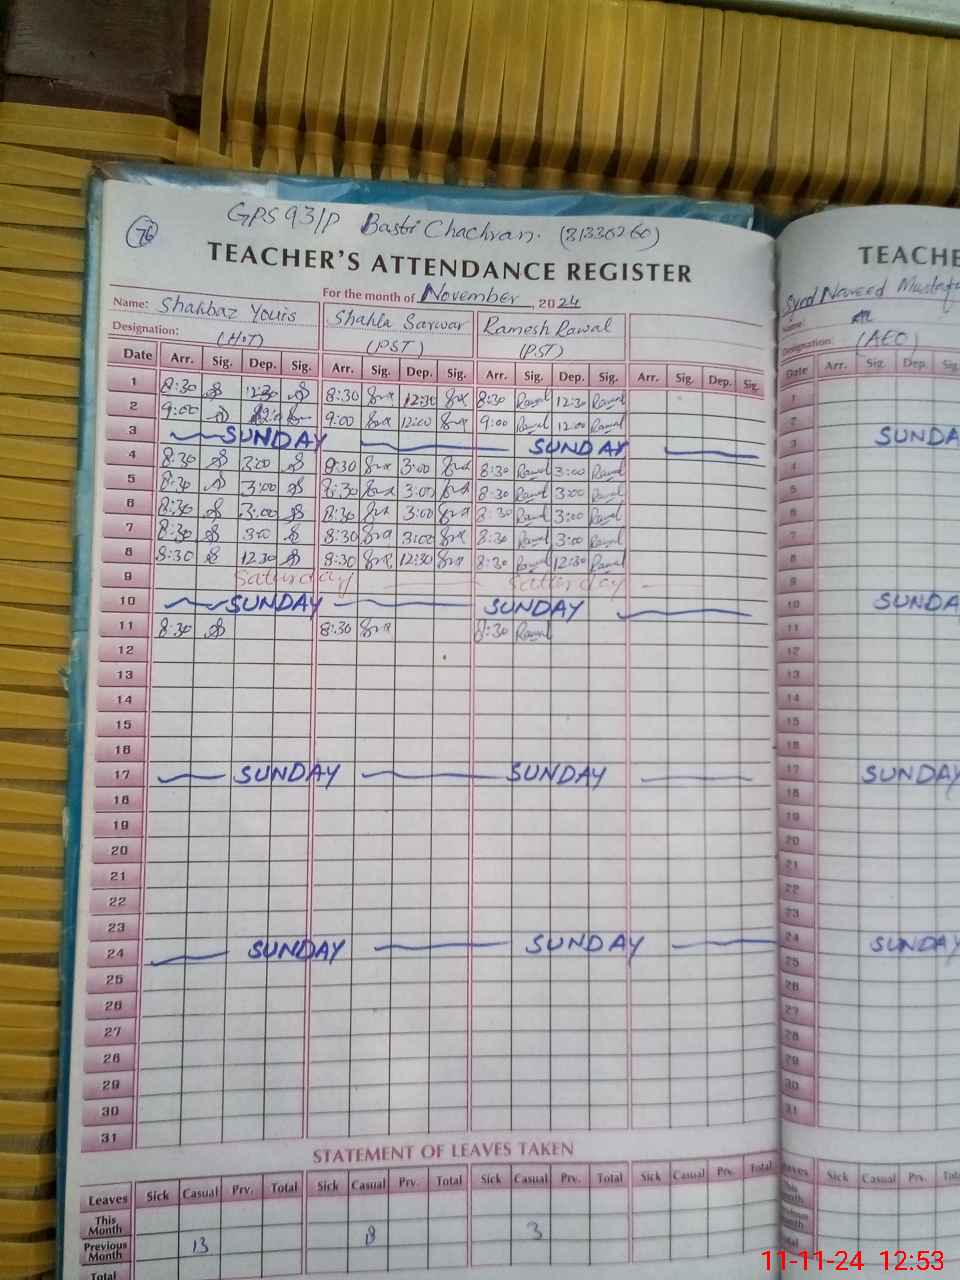 76
GPS 93/P Basti Chachran. (31330260)
TEACHER'S ATTENDANCE REGISTER
For the month of November, 2024
Name: Shahbaz Younis Shahla Sarwar Ramesh Rawal
Designation: (H.T) (PST) (PST)
Date Arr. Sig. Dep. Sig. Arr. Sig. Dep. Sig. Arr. Sig. Dep. Sig. Arr. Sig. Dep. Sig.
1 8:30 12:30 8:30 12:30 8:30 Rawal 12:30 Rawal
2 9:00 9:00 12:00 9:00 Rawal 12:00 Rawal
3 SUNDAY SUNDAY
4 8:30 3:00 8:30 3:00 8:30 Rawal 3:00 Rawal
5 8:30 3:00 8:30 3:00 8:30 Rawal 3:00 Rawal
6 8:30 3:00 8:30 3:00 8:30 Rawal 3:00 Rawal
7 8:30 3:00 8:30 3:00 8:30 Rawal 3:00 Rawal
8 8:30 12:30 8:30 12:30 8:30 Rawal 12:30 Rawal
9 Saturday Satturday
10 SUNDAY SUNDAY
11 8:30 8:30 8:30 Rawal
12
13
14
15
16
17 SUNDAY SUNDAY
18
19
20
21
22
23
24 SUNDAY SUNDAY
25
26
27
28
29
30
31
STATEMENT OF LEAVES TAKEN
Leaves Sick Casual Prv. Total Sick Casual Prv. Total Sick Casual Prv. Total Sick Casual Prv. Total
This Month
Previous Month 13 8 3
Total
TEACHE
Syed Naveed Mustafa
Name:
Designation: (AEO)
Date Arr. Sig. Dep. Sig.
1
2
3 SUNDA
4
5
6
7
8
9
10 SUNDA
11
12
13
14
15
16
17 SUNDA
18
19
20
21
22
23
24 SUNDAY
25
26
27
28
29
30
31
Leaves Sick Casual Prv.
This Month
11-11-24 12:53